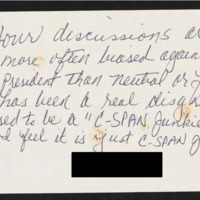 Your discussions a
more often biased again
President than neutral or
has been a real disg
sed to be a "C-SPAN junki
d feel it is just C-SPAN j